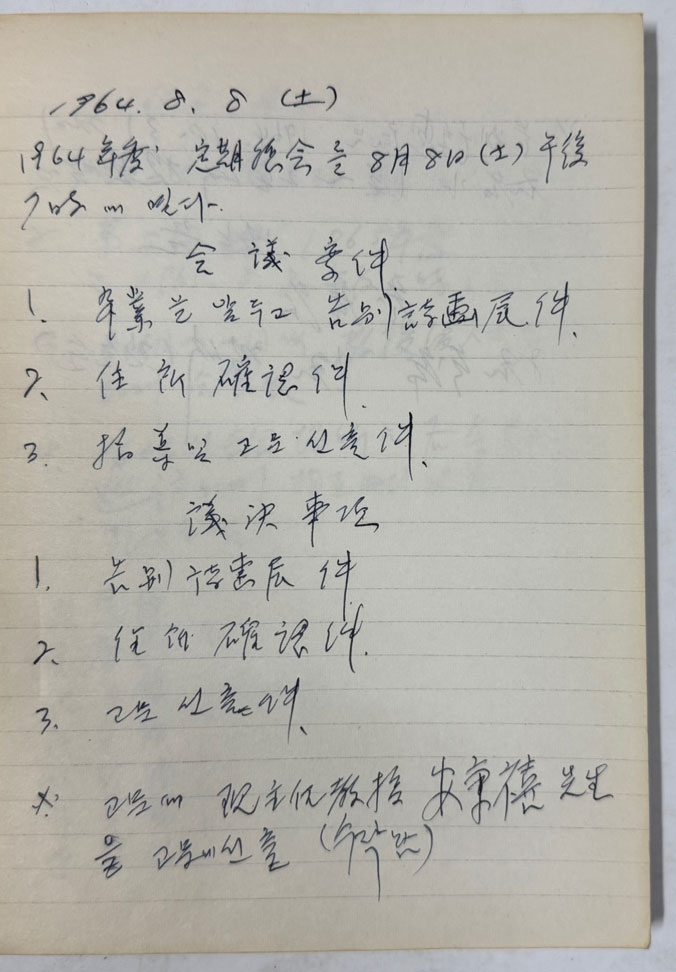 1964. 8. 8 (土)
1964年度 定期総会를 8月 8日(土) 午後
7時에 연다.
会議案件
1. 卒業을 앞두고 告別 詩画展 件.
2. 住所 確認 件.
3. 및 고문 선출 件.
議決事項
1. 告別 詩畵展 件
2. 住所 確認 件.
3. 고문 선출 件.
※ 고문에 現主任教授 安東禧 先生
을 고문에 선출 (수락함)